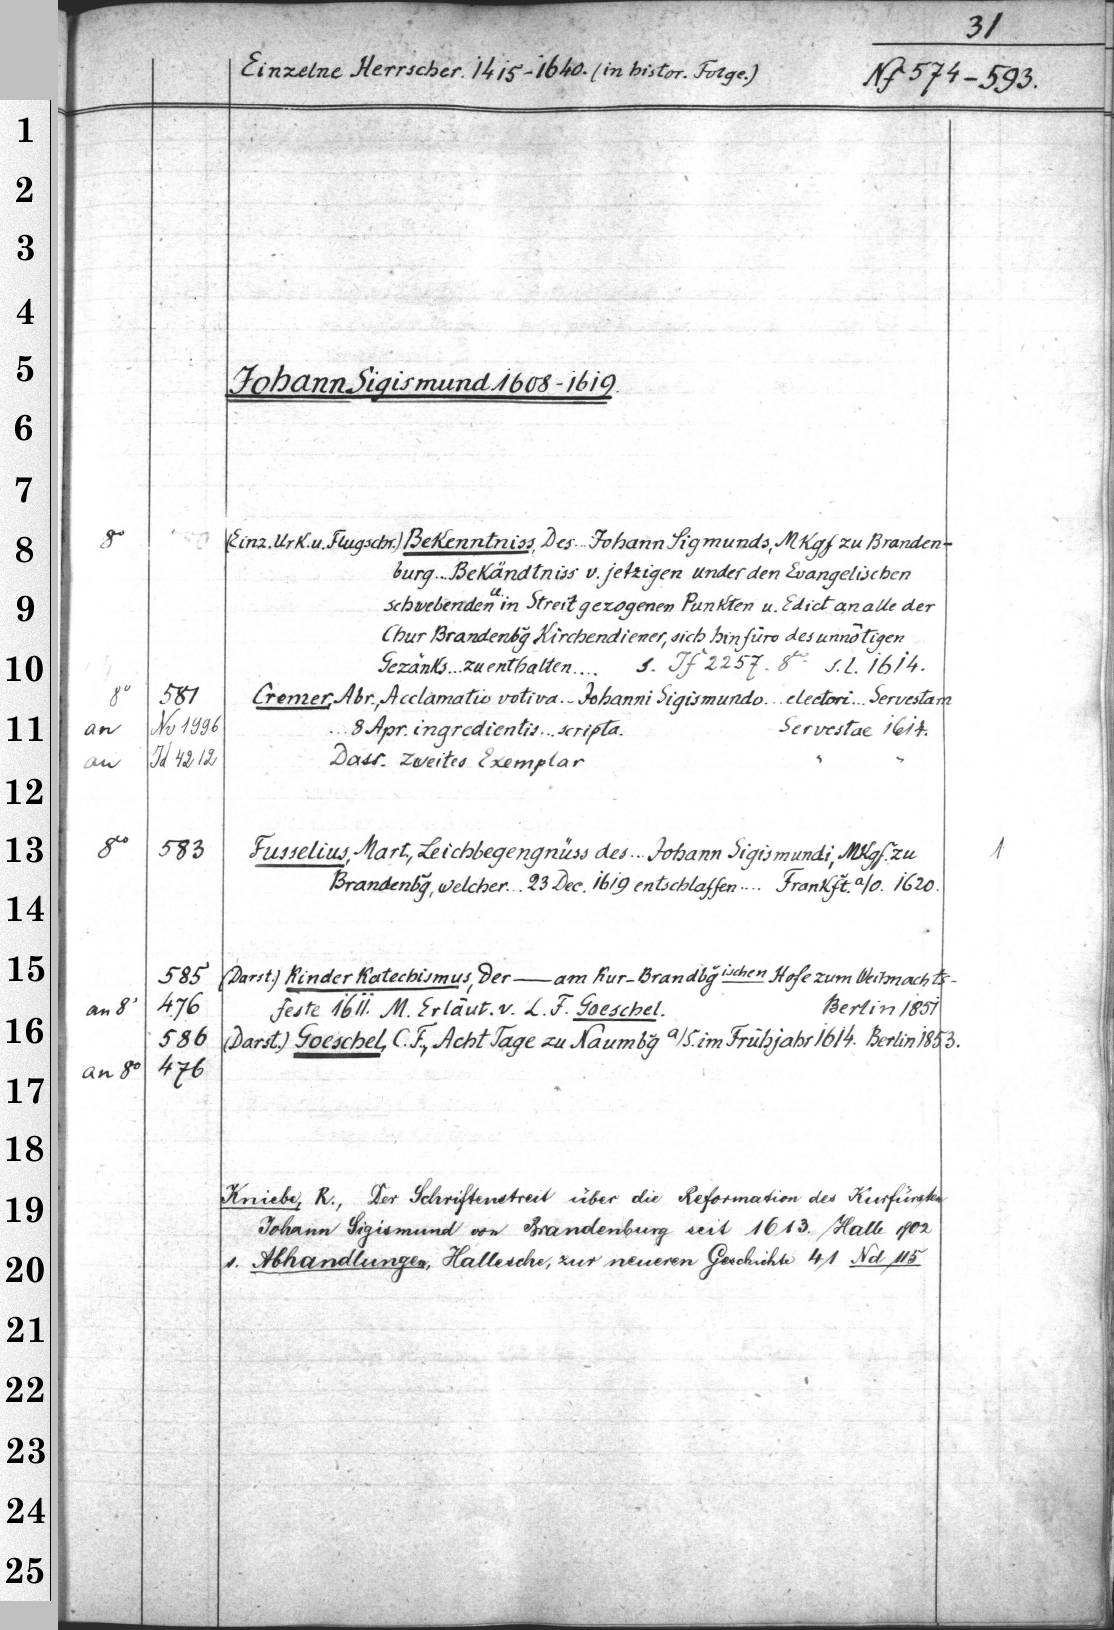 31
Einzelne Herrscher. 1415-1640. (in histor. Folge.)
Nf 574-593.
1
2
3
4
5
Johann Sigismund 1608-1619.
6
7
8
8° (Einz. Urk. u. Flugschr.) Bekenntniss, Des... Johann Sigmunds, MKgf zu Branden-
burg... Bekändtniss v. jetzigen under den Evangelischen
9
schwebenden u in Streit gezogenen Punkten u. Edict an alle der
Chur Brandenbg̃ Kirchendiener, sich hinfüro des unnötigen
10
Gezänks... zu enthalten.... s. If 2257. 8° s.l. 1614.
8° 581 Cremer, Abr., Acclamatio votiva... Johanni Sigismundo... electori... Servestam
11
an No 1996 ...8 Apr. ingredientis... scripta. Servestae 1614.
an Id 4212 Dass. zweites Exemplar " "
12
13
8° 583 Fusselius, Mart., Leichbegengnüss des... Johann Sigismundi, MKgf. zu 1
Brandenbg̃, welcher... 23 Dec. 1619 entschlaffen.... Frankft. a/O. 1620.
14
15
585 (Darst.) Kinder Katechismus, Der — am Kur-Brandbg̃ischen Hofe zum Weihnachts-
an 8° 476 feste 1611. M. Erläut. v. L. F. Goeschel. Berlin 1851
16
586 (Darst.) Goeschel, C. F., Acht Tage zu Naumbg̃ a/S. im Frühjahr 1614. Berlin 1853.
an 8° 476
17
18
19
Kniebe, R., Der Schriftenstreit über die Reformation des Kurfürsten
Johann Sigismund von Brandenburg seit 1613. Halle 1902
20
s. Abhandlungen, Hallesche, zur neueren Geschichte 41 Nd 115
21
22
23
24
25